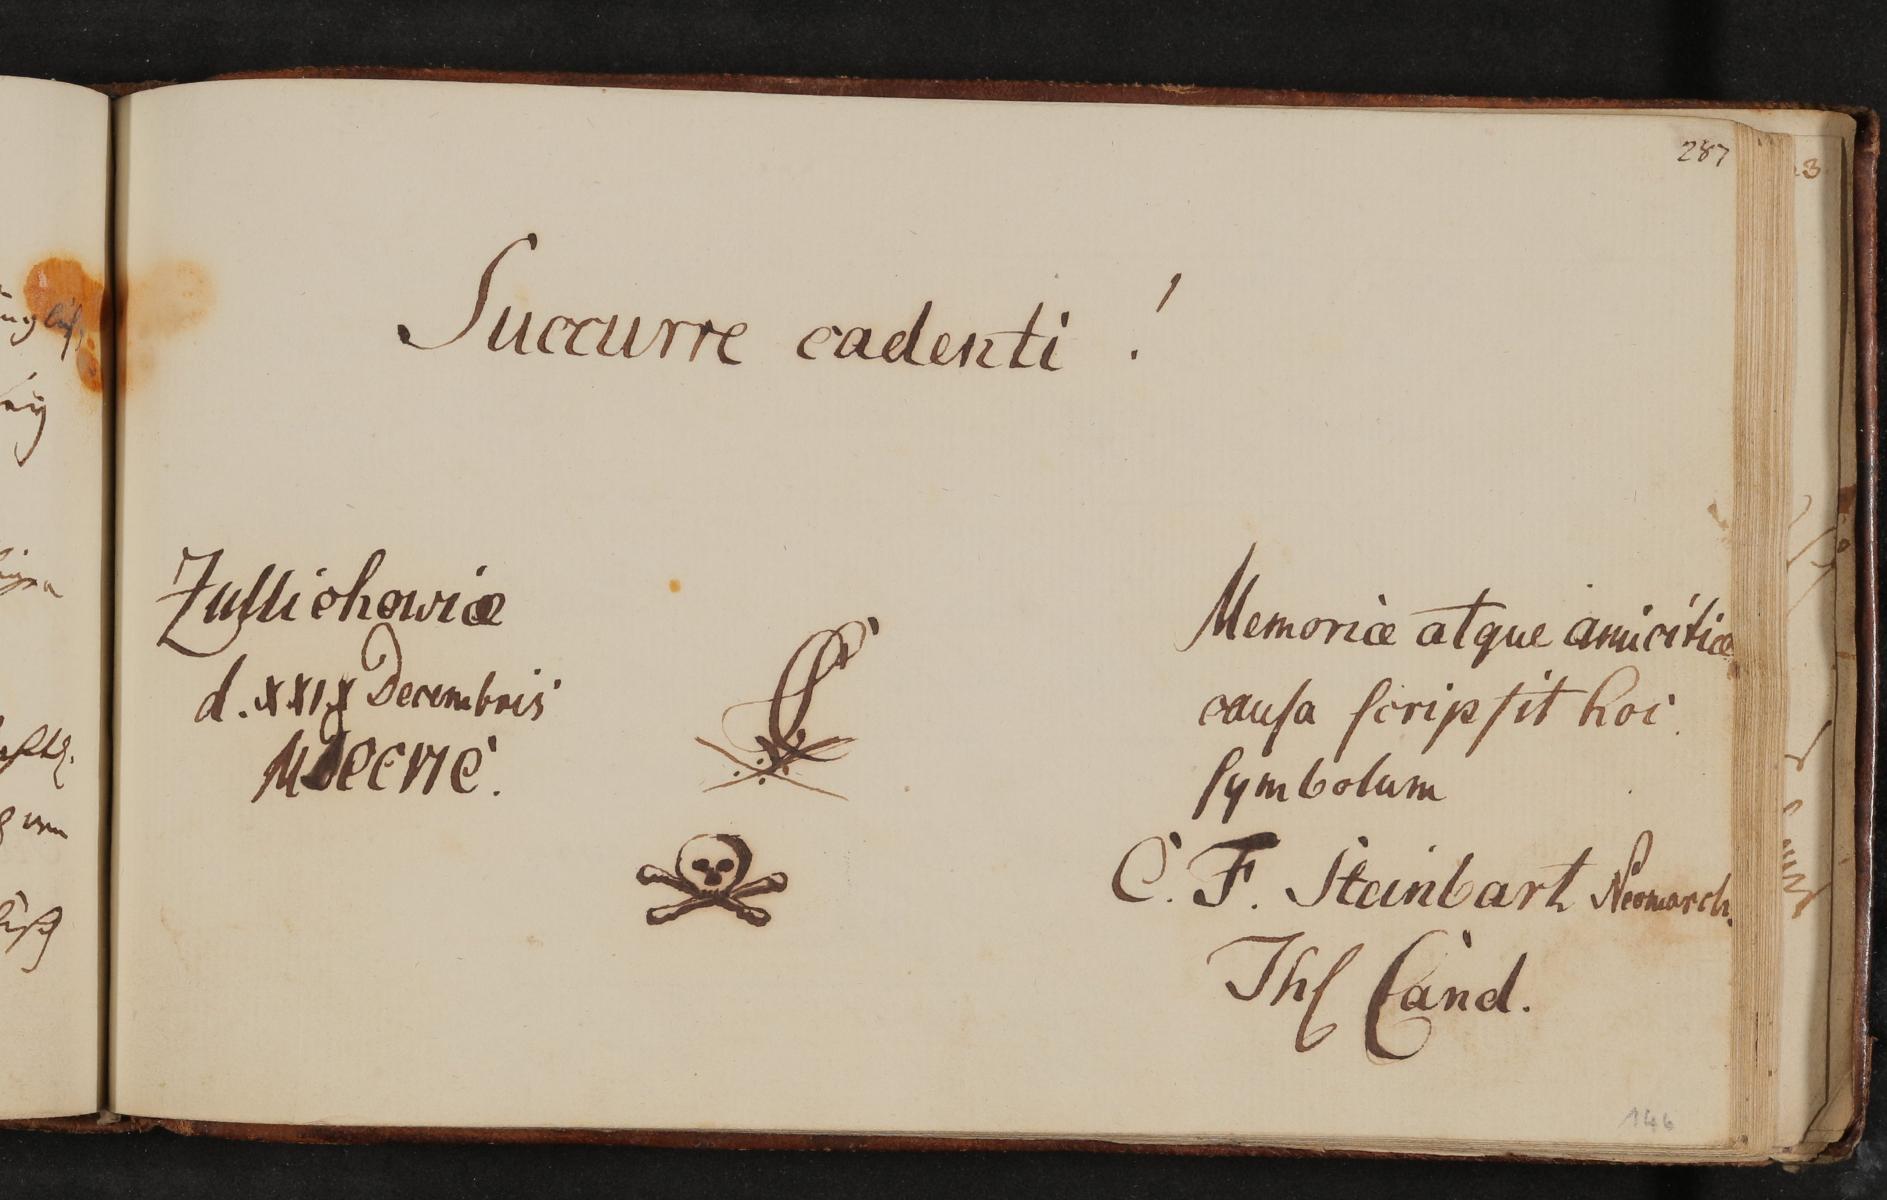 287
Succurre cadenti !
Zullichowiæ
d. XXIX Decembris
Memoriæ atque amicitiæ
causa scripsit hoc
symbolum
C. F. Steinbart Neomarch.
Cand.
146